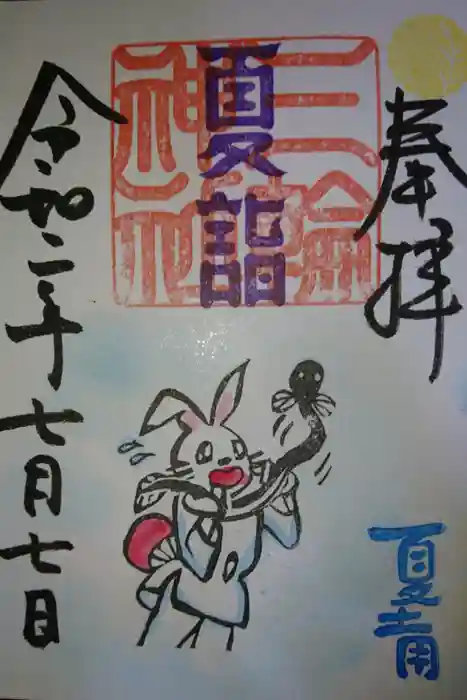 奉拝
夏詣
三輪
神社
令和二年七月七日
夏土用